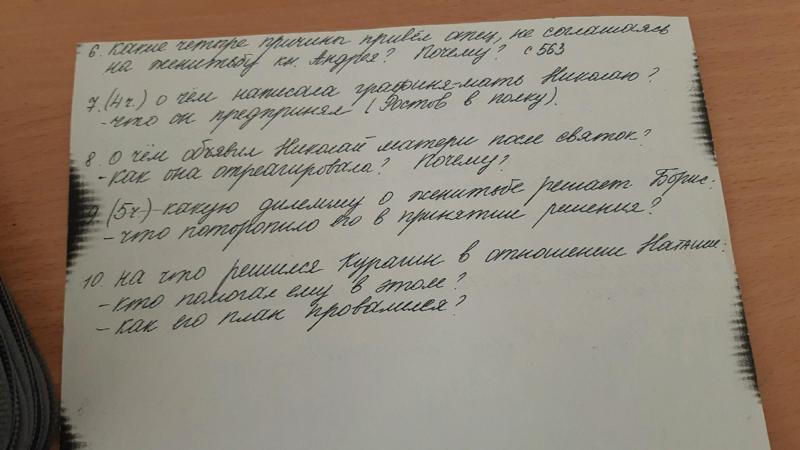 6. Какие четыре причины привёл отец, не соглашаясь
на женитьбу кн. Андрея? Почему? с 563
7. (4ч.) о чём написала графиня-мать Николаю?
- что он предпринял (Ростов в полку).
8. О чём объявил Николай матери после святок?
- как она отреагировала? Почему?
9. (5ч.) - какую дилемму о женитьбе решает Борис:
- что поторопило его в принятии решения?
10. на что решился Курагин в отношении Наташи:
- кто помогал ему в этом?
- как его план провалился?